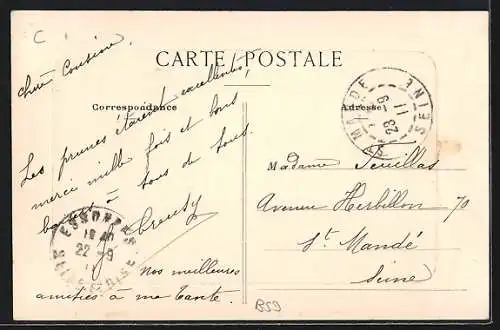 C
CARTE POSTALE
Correspondance
Adresse
chère Cousine,
Les prunes étaient excellentes,
merci mille fois et bons
à tous de tous.
Nos meilleures
amitiés à ma tante.
ST MANDÉ
SEINE
23 -9
11
ESSONNES
22 -9
SEINE-ET-OISE
Madame Feuillas
Avenue Herbillon 70
St. Mandé
Seine
B59